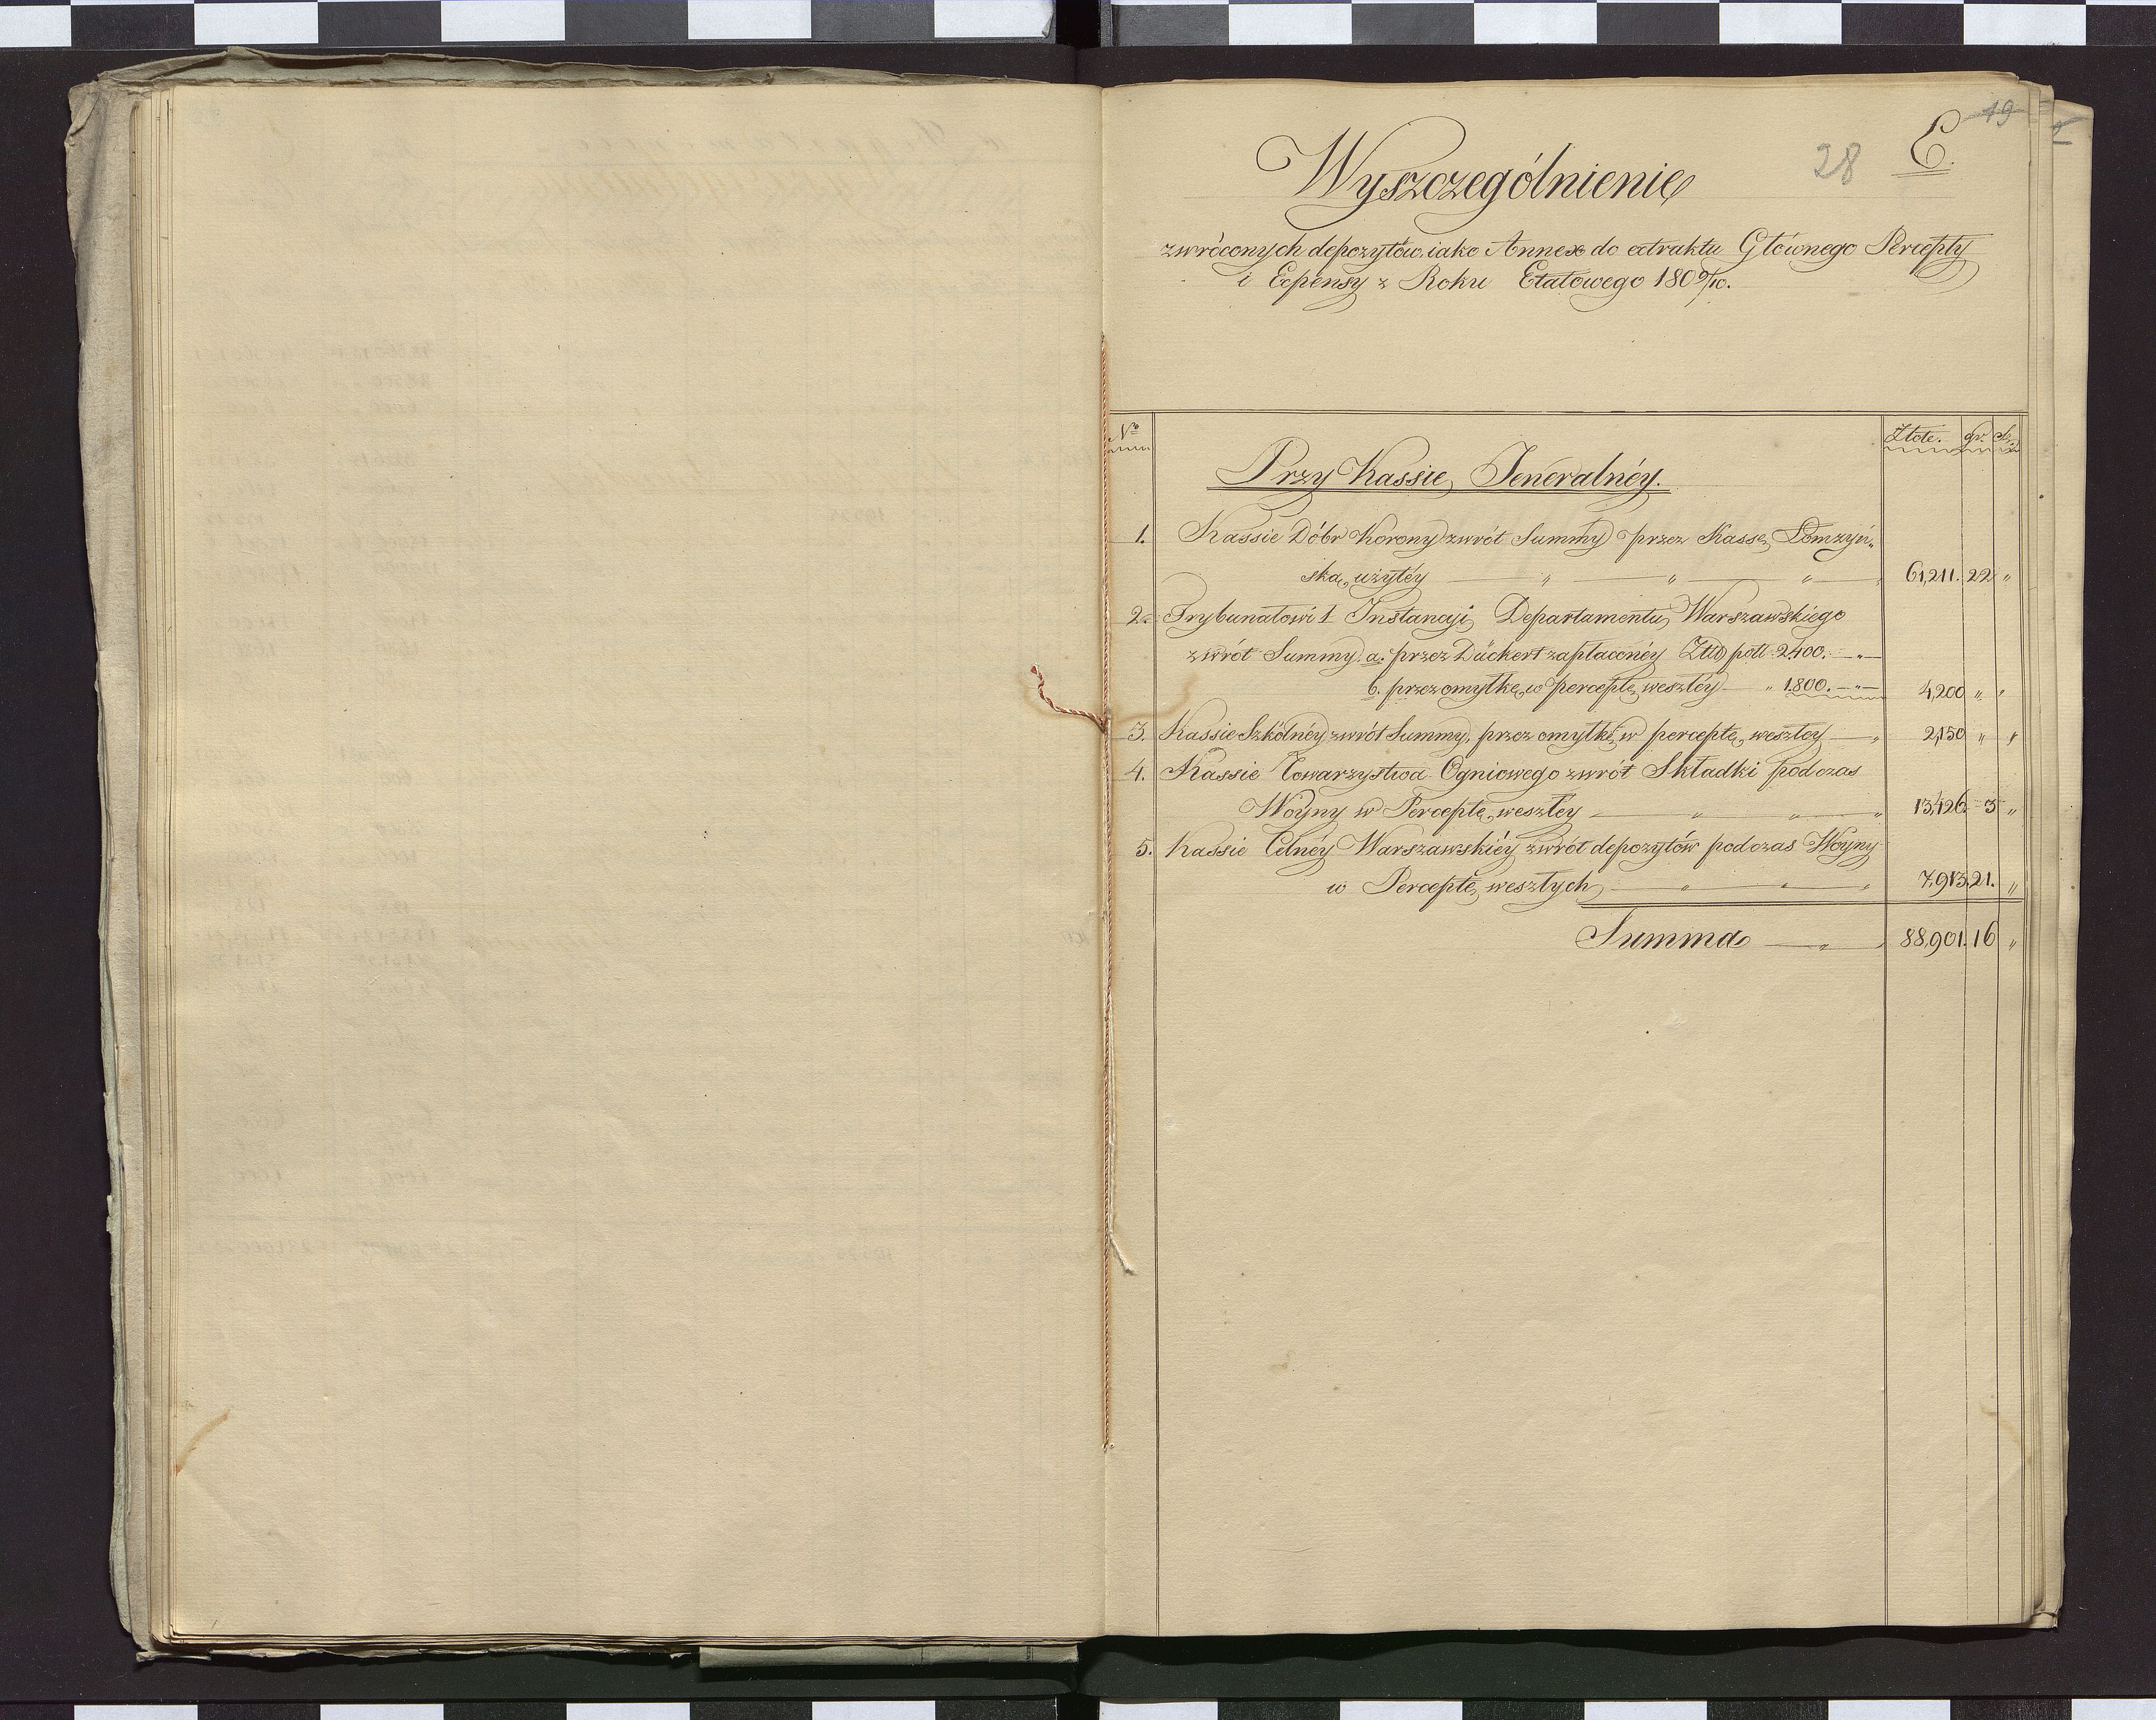 19
28 E.
Wyszczególnienie
zwróconych depozytów iako Annex do extraktu Głównego Percepty
i Expensy z Roku Etatowego 1809/10.
No Złote. gr. 
Przy Kassie Jeneralnéy.
1. Kassie Dóbr Korony zwrót Summy przez Kassę Łomżyń„
ską użytéy — „ — „ — „ — 61,211. 22 „
2. Trybunałowi 1 Instancyi Departamentu Warszawskiego
zwrót Summy a. przez Dückert zapłaconéy Złło poll 2400. — „ —
b. przez omyłkę w perceptę weszłéy — „ 1800. — „ — 4,200 „ „
3. Kassie Szkólnéy zwrót Summy, przez omyłkę w perceptę weszłey — „ 2,150 „ „
4. Kassie Towarzystwa Ogniowego zwrót Składki podczas
Woyny w Perceptę weszłéy — „ — „ — „ 13,426 3 „
5. Kassie Celnéy Warszawskiéy zwrót depozytów podczas Woyny
w Perceptę weszłych — „ — „ — „ 7,913. 21. „
Summa — „ — 88,901. 16 „